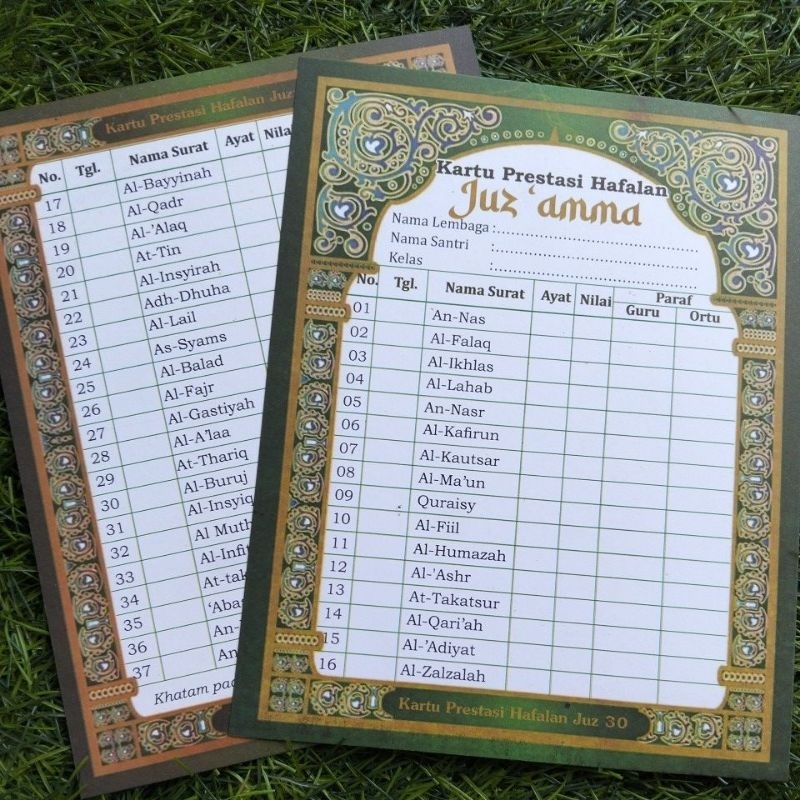 Kartu Prestasi Hafalan Juz
No. Tgl. Nama Surat Ayat Nilai
17 Al-Bayyinah
18 Al-Qadr
19 Al-'Alaq
20 At-Tin
21 Al-Insyirah
22 Adh-Dhuha
23 Al-Lail
24 As-Syams
25 Al-Balad
26 Al-Fajr
27 Al-Gastiyah
28 Al-A'laa
29 At-Thariq
30 Al-Buruj
31 Al-Insyiq
32 Al Muth
33 Al-Infi
34 At-tak
35 'Abas
36 An-
37 An-
Khatam pad
Kartu Prestasi Hafalan
Juz 'amma
Nama Lembaga :
Nama Santri :
Kelas :
No. Tgl. Nama Surat Ayat Nilai Paraf
Guru Ortu
01 An-Nas
02 Al-Falaq
03 Al-Ikhlas
04 Al-Lahab
05 An-Nasr
06 Al-Kafirun
07 Al-Kautsar
08 Al-Ma'un
09 Quraisy
10 Al-Fiil
11 Al-Humazah
12 Al-'Ashr
13 At-Takatsur
14 Al-Qari'ah
15 Al-'Adiyat
16 Al-Zalzalah
Kartu Prestasi Hafalan Juz 30